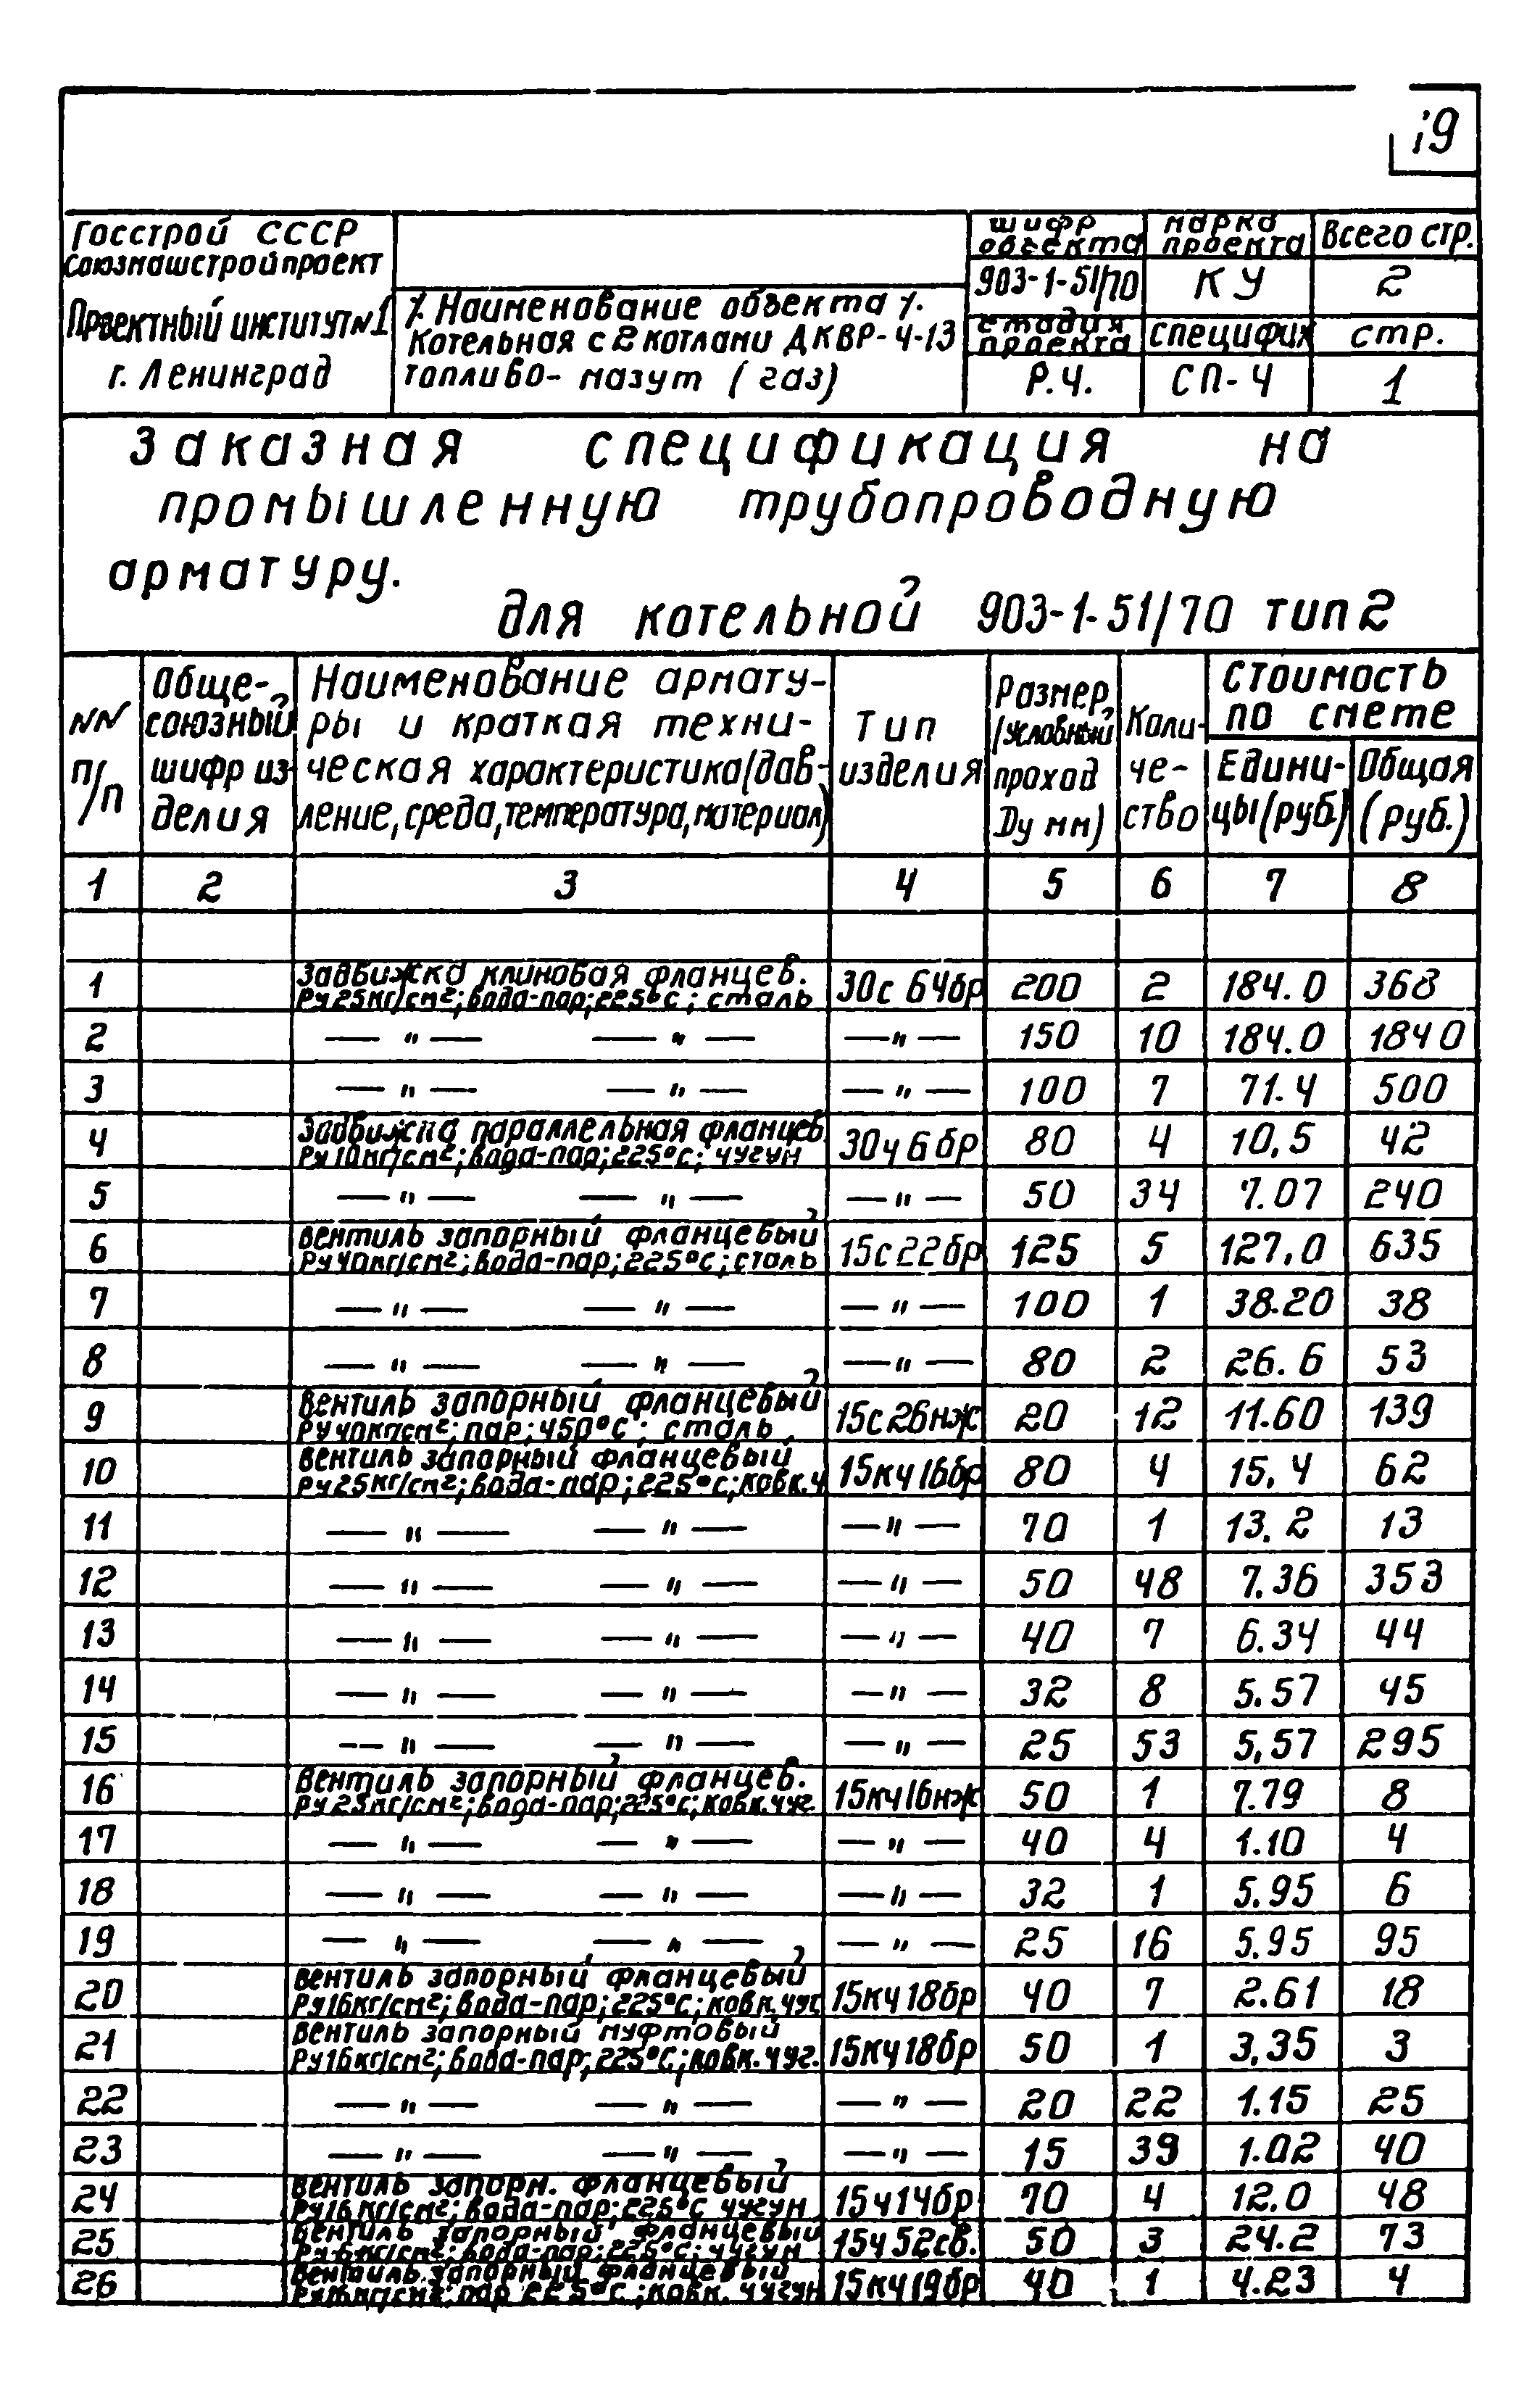 19
Госстрой СССР
Союзмашстройпроект
Проектный институт №1
г. Ленинград
⁒ Наименование объекта ⁒.
Котельная с 2 котлами ДКВР-4-13
топливо- мазут (газ)
шифр объекта
марка проекта
Всего стр.
903-1-51/70
КУ
2
стадия проекта
специфик
стр.
Р.Ч.
СП-4
1
Заказная спецификация на
промышленную трубопроводную
арматуру.
для котельной 903-1-51/70 тип 2
№№ п/п
Обще-
союзный
шифр из-
делия
Наименование армату-
ры и краткая техни-
ческая характеристика (дав-
ление, среда, температура, материал)
Тип
изделия
Размер,
(условный
проход
Dу мм)
Коли-
че-
ство
Стоимость
по смете
Едини-
цы (руб.)
Общая
(руб.)
1 2 3 4 5 6 7 8
1 Задвижка клиновая фланцев. 30с 64бр 200 2 184.0 368
Ру25кг/см²; вода-пар; 225°с; сталь
2 —"— —"— —"— 150 10 184.0 1840
3 —"— —"— —"— 100 7 71.4 500
4 Задвижка параллельная фланцев. 30ч 6 бр 80 4 10,5 42
Ру10кг/см²; вода-пар; 225°с; чугун
5 —"— —"— —"— 50 34 7.07 240
6 Вентиль запорный фланцевый 15с 22бр 125 5 127,0 635
Ру40кг/см²; вода-пар; 225°с; сталь
7 —"— —"— —"— 100 1 38.20 38
8 —"— —"— —"— 80 2 26.6 53
9 Вентиль запорный фланцевый 15с26нж 20 12 11.60 139
Ру40кг/см²; пар; 450°с; сталь
10 Вентиль запорный фланцевый 15кч16бр 80 4 15,4 62
Ру25кг/см²; вода-пар; 225°с; ковк.ч
11 —"— —"— —"— 70 1 13.2 13
12 —"— —"— —"— 50 48 7.36 353
13 —"— —"— —"— 40 7 6.34 44
14 —"— —"— —"— 32 8 5.57 45
15 —"— —"— —"— 25 53 5,57 295
16 Вентиль запорный фланцев. 15кч16нж 50 1 7.79 8
Ру25кг/см²; вода-пар; 225°с; ковк.чуг.
17 —"— —"— —"— 40 4 1.10 4
18 —"— —"— —"— 32 1 5.95 6
19 —"— —"— —"— 25 16 5.95 95
20 Вентиль запорный фланцевый 15кч18бр 40 7 2.61 18
Ру16кг/см²; вода-пар; 225°с; ковк.чуг
21 Вентиль запорный муфтовый 15кч18бр 50 1 3,35 3
Ру16кг/см²; вода-пар; 225°с; ковк.чуг.
22 —"— —"— —"— 20 22 1.15 25
23 —"— —"— —"— 15 39 1.02 40
24 Вентиль запорн. фланцевый 15ч14бр 70 4 12.0 48
Ру16кг/см²; вода-пар; 225°с чугун
25 Вентиль запорный фланцевый 15ч52св. 50 3 24.2 73
Ру6кг/см²; вода-пар; 225°с; чугун
26 Вентиль запорный фланцевый 15кч19бр 40 1 4.23 4
Ру16кг/см²; пар 225°с; ковк. чугун